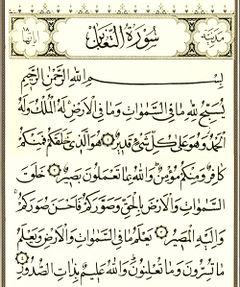 مدنية سورة التغابن آياتها
بِسْمِ اللَّهِ الرَّحْمَٰنِ الرَّحِيمِ
يُسَبِّحُ لِلَّهِ مَا فِي السَّمَوَاتِ وَمَا فِي الْأَرْضِ لَهُ الْمُلْكُ وَلَهُ
الْحَمْدُ وَهُوَ عَلَى كُلِّ شَيْءٍ قَدِيرٌ ۝ هُوَ الَّذِي خَلَقَكُمْ فَمِنْكُمْ
كَافِرٌ وَمِنْكُمْ مُؤْمِنٌ وَاللَّهُ بِمَا تَعْمَلُونَ بَصِيرٌ ۝ خَلَقَ
السَّمَوَاتِ وَالْأَرْضَ بِالْحَقِّ وَصَوَّرَكُمْ فَأَحْسَنَ صُوَرَكُمْ
وَإِلَيْهِ الْمَصِيرُ ۝ يَعْلَمُ مَا فِي السَّمَوَاتِ وَالْأَرْضِ وَيَعْلَمُ
مَا تُسِرُّونَ وَمَا تُعْلِنُونَ وَاللَّهُ عَلِيمٌ بِذَاتِ الصُّدُورِ ۝